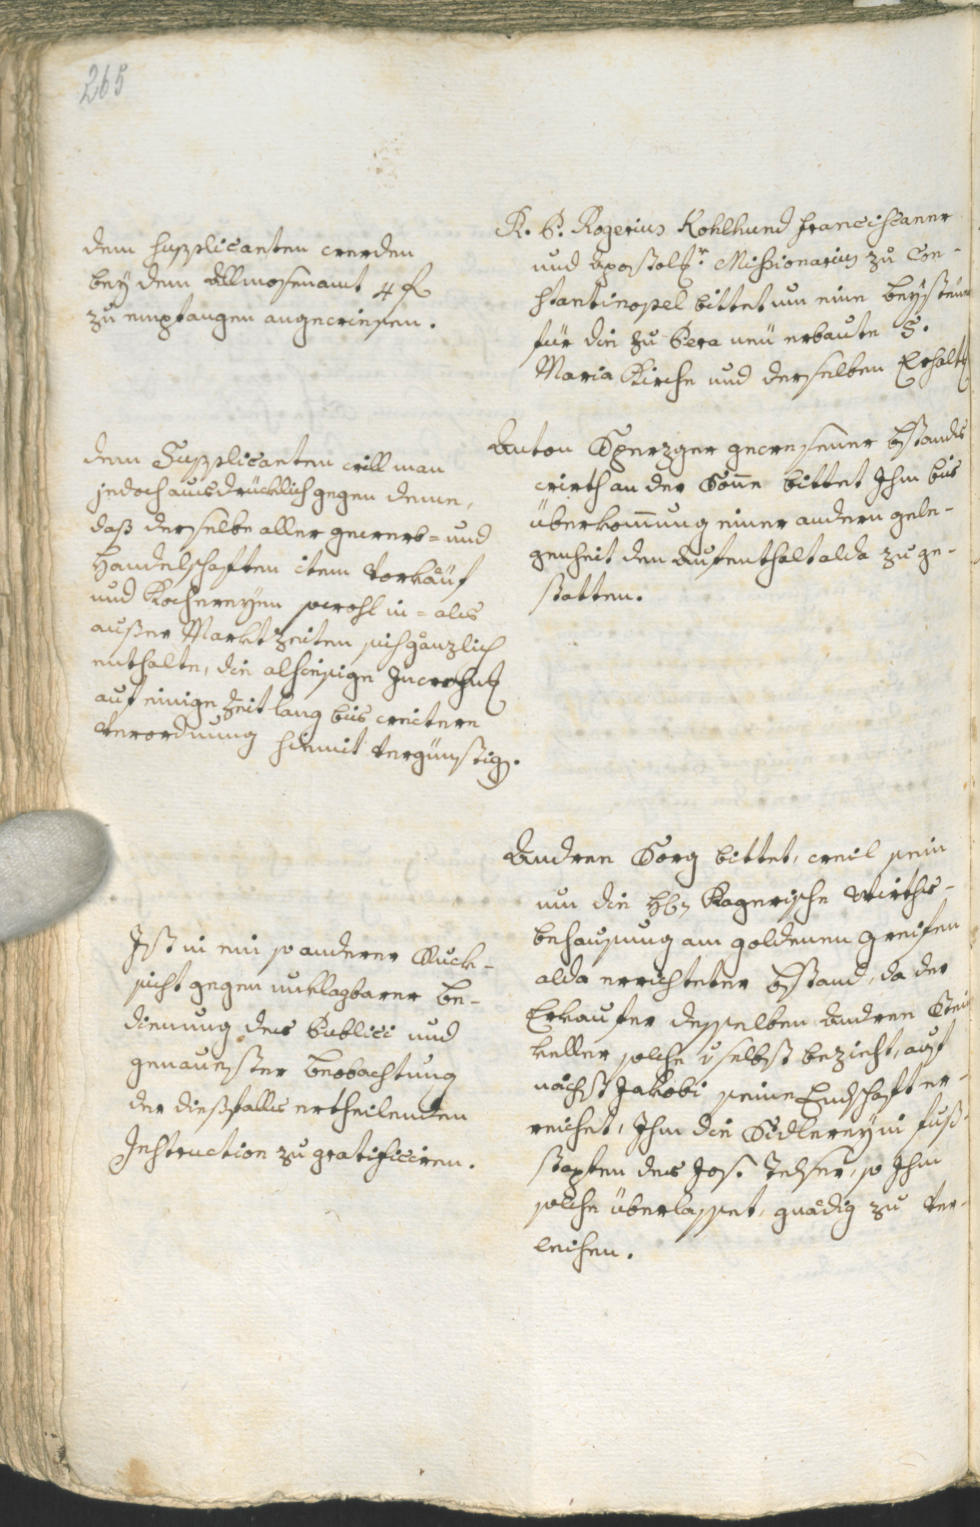 265
dem Supplicanten werden
bey dem Allmosenamt 4 f
zu empfangen angewiesen.
R. P. Rogerius Kohlhund Franciscaner
und Apostolr. Missionarius zu Con-
stantinopel bittet um eine beysteuer
für die zu Pera neü erbaute S.
Maria Kirche und derselben Erhaltg
dem Supplicanten will man
jedoch ausdrücklich gegen deme,
daß derselbe aller gewerb- und
Handelschaften item Vorkäuf
und Kochereyen sowohl in- als
außer Marktzeiten sich gänzlich
enthalte, die alhiesige Inwohng
auf einige Zeit lang bis weitere
Verordnung hiemit vergünstign.
Anton Sperzger gewesener bstands
wirth an der Soñe bittet Ihm bis
überkom̃ung einer andern gele-
genheit den Aufenthalt alda zu ge-
statten.
Ist in ein so anderer Ruck-
sicht gegen unklagbarer be-
dienung des Publici und
genauester beobachtung
der dießfalls ertheilenden
Instruction zu gratificiren.
Andree Sorg bittet, weil sein
um die Kagerische Wirths-
behausung am goldenen greifen
alda errichteter bstand, da der
Erkaufer desselben Andree
keller solche selbst bezieht, auf
nächst Jakobi seine Endschaft er-
reichet, Ihm die Sidlerey in fuß-
stapfen des Jos. so Ihm
solche überlasset, gnädig zu ver-
leihen.